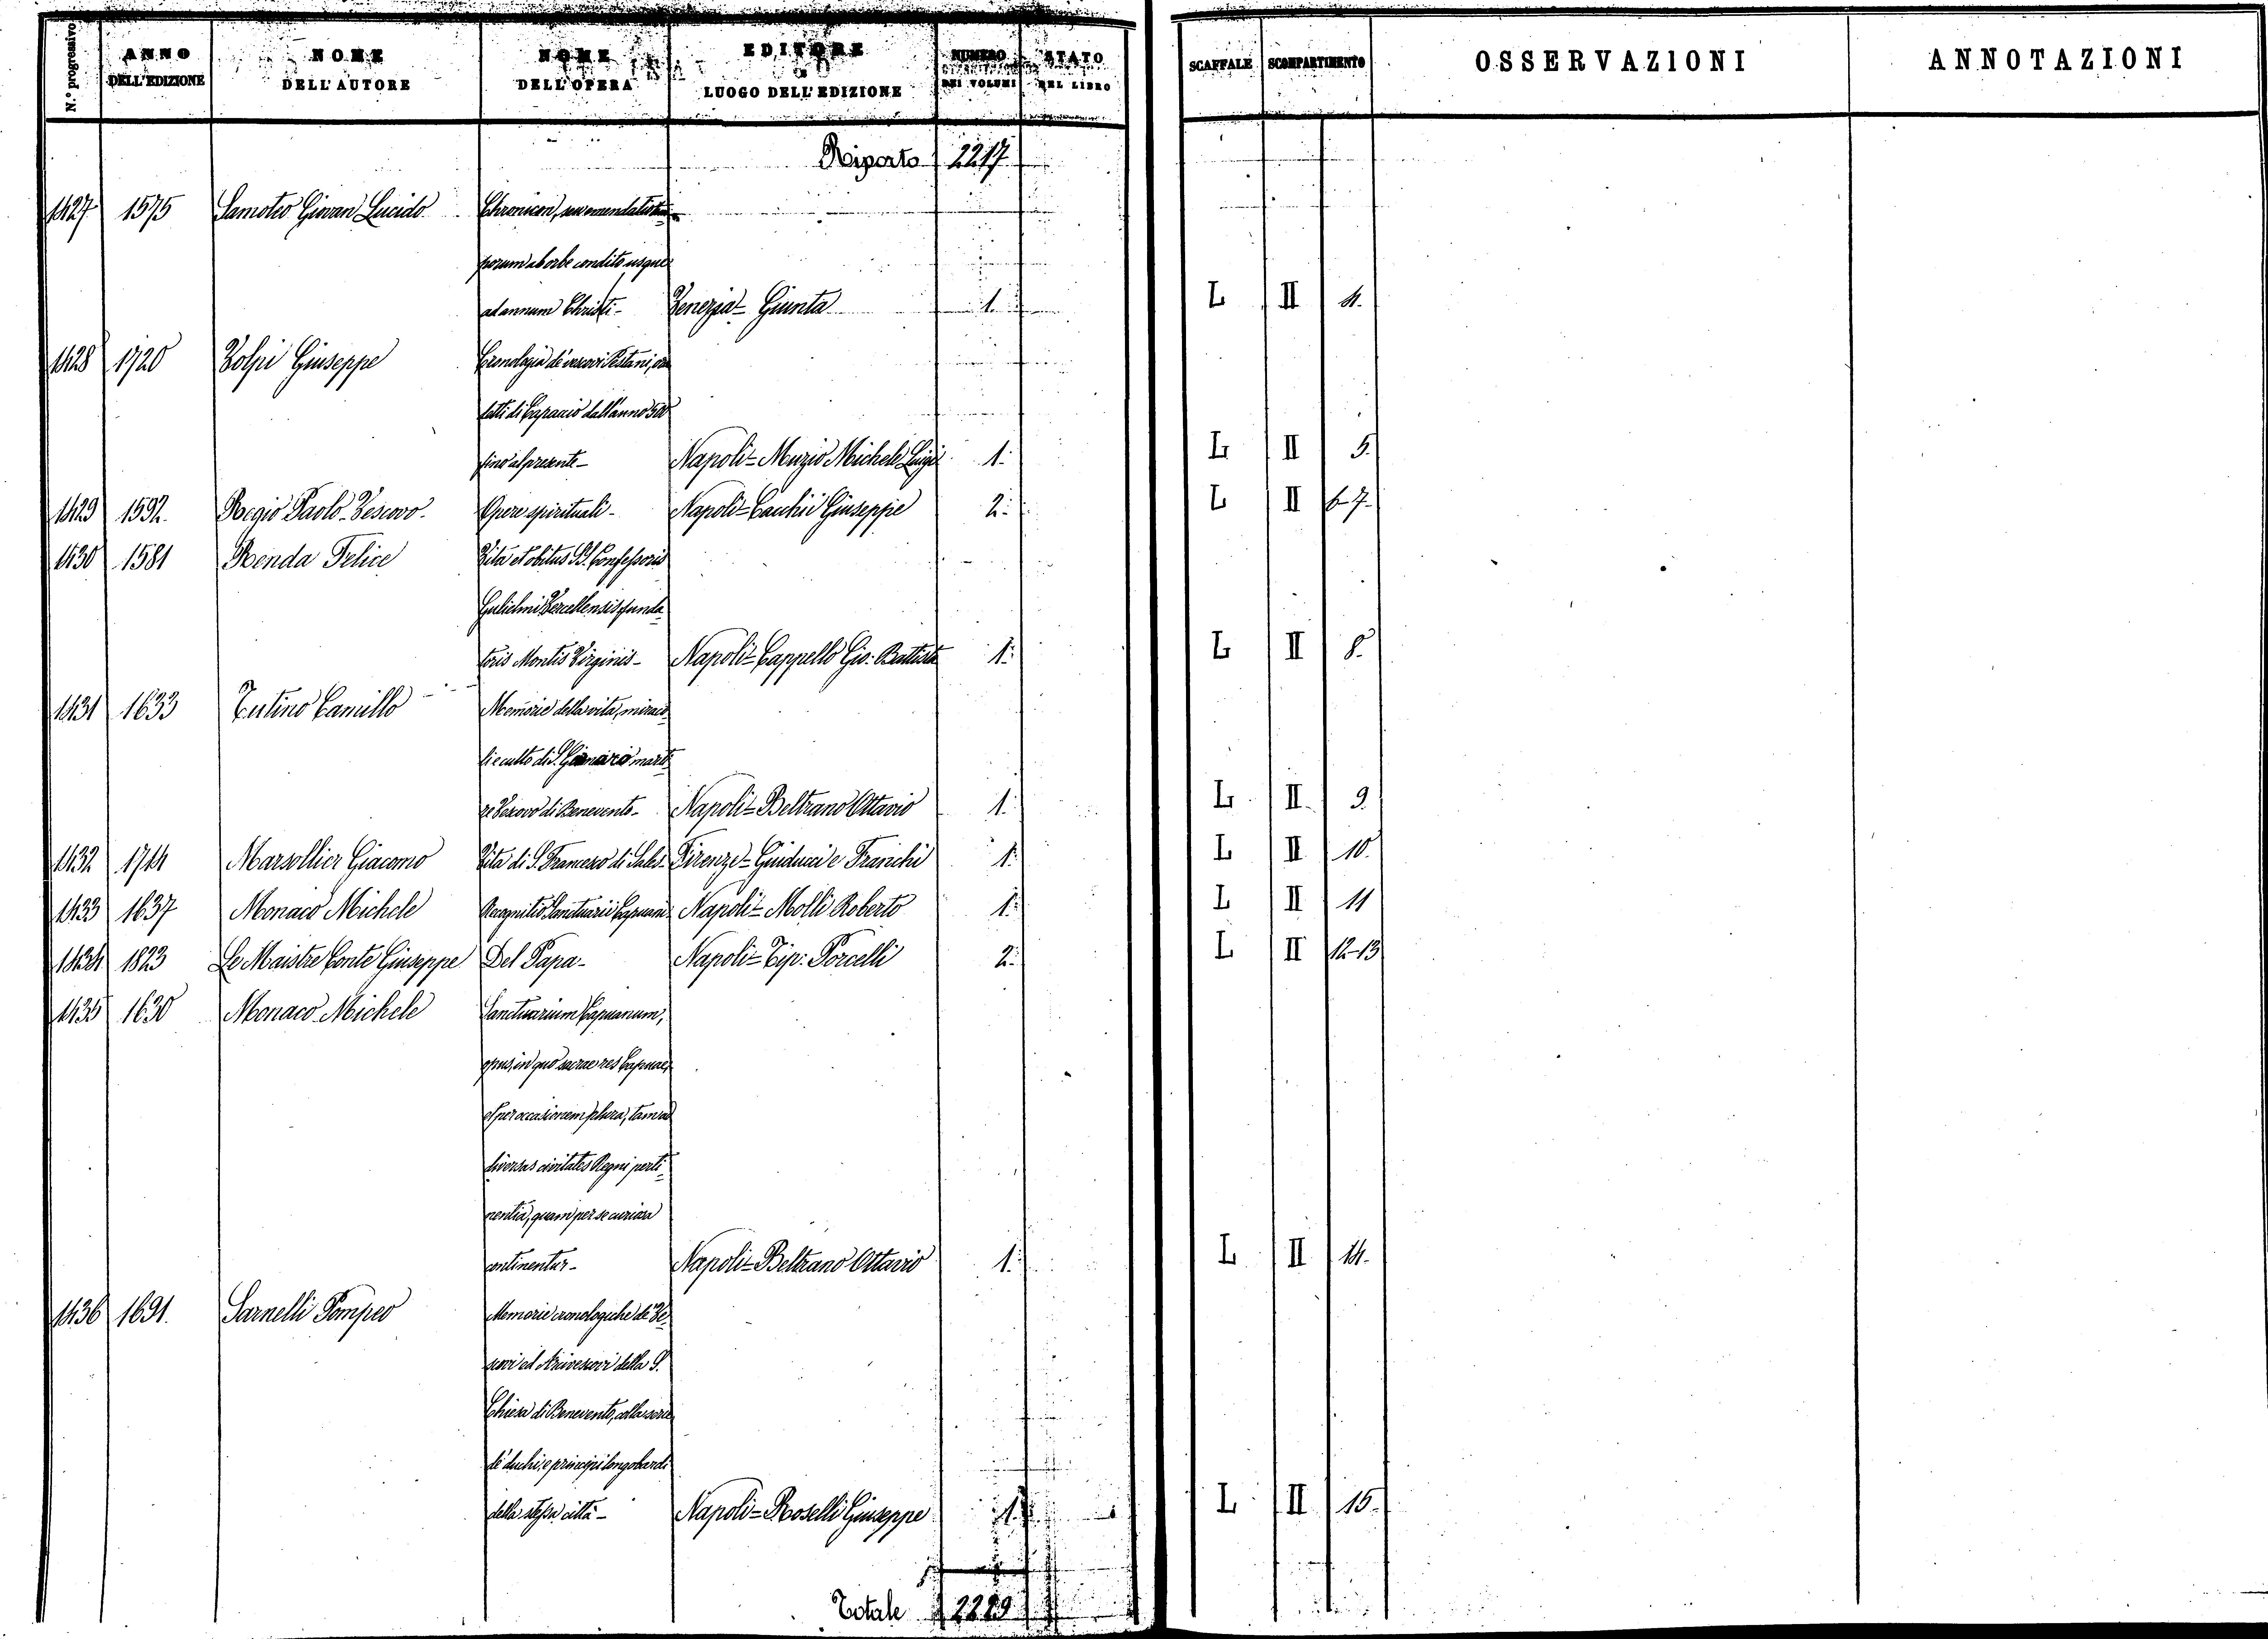 N.º progressivo | ANNO DELL'EDIZIONE | NOME DELL'AUTORE | NOME DELL'OPERA | EDITORE E LUOGO DELL'EDIZIONE | NUMERO DEI VOLUMI | STATO DEL LIBRO | SCAFFALE | SCOMPARTIMENTO | OSSERVAZIONI | ANNOTAZIONI
Riporto 2217
1427 1575 Samoteo Giovan Lucido Chronicon, seu emendatio tem-
porum ab orbe condito usque
ad annum Christi- Venezia= Giunta 1. L II 4.
1428 1720 Volpi Giuseppe Cronologia de' vescovi Pestani, ora
detti di Capaccio dall'anno 500
fino al presente- Napoli= Muzio Michele Luigi 1. L II 5.
1429 1592. Regio Paolo-Vescovo- Opere spirituali- Napoli= Cacchii Giuseppe 2. L II 6-7.
1430 1581 Renda Felice Vita et obitus SS. Confessoris
Gulielmi Vercellensis funda-
toris Montis Virginis- Napoli= Cappello Gio: Battista 1. L II 8.
1431 1633 Tutino Camillo Memorie della vita, miraco-
li e culto di S. Gennaro marti-
re Vescovo di Benevento- Napoli= Beltrano Ottavio 1. L II 9.
1432 1714 Marsollier Giacomo Vita di S. Francesco di Sales- Firenze= Guiducci e Franchi 1. L II 10.
1433 1637 Monaco Michele Recognitio Sanctuarii Capuani Napoli= Molli Roberto 1. L II 11
1434 1823 Le Maistre Conte Giuseppe Del Papa- Napoli= Tip: Porcelli 2. L II 12-13
1435 1630 Monaco Michele Sanctuarium Capuanum,
opus, in quo sacrae res Capuae,
et per occasionem plura, tam ad
diversas civitates Regni perti-
nentia, quam per se curiosa
continentur- Napoli= Beltrano Ottavio 1. L II 14.
1436 1691. Sarnelli Pompeo Memorie cronologiche de' Ve-
scovi ed Arcivescovi della S.
Chiesa di Benevento, colla serie
de' duchi, e principi longobardi
della stessa città- Napoli= Roselli Giuseppe 1. L II 15.
Totale 2229